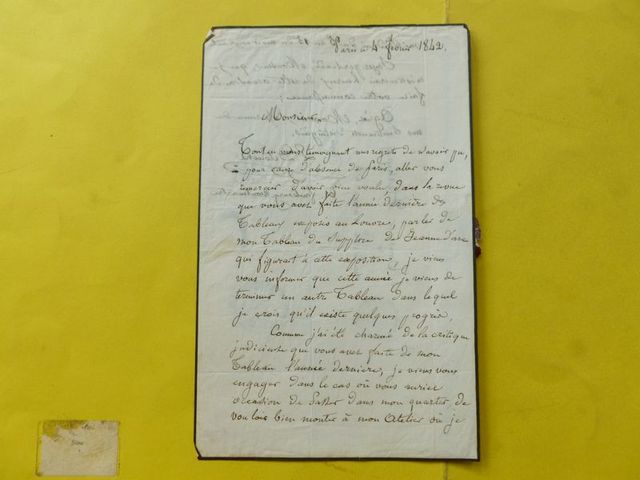 Paris ce 4 février 1842.
Monsieur,
Tout en vous témoignant mes regrets de n'avoir pu,
pour cause d'absence de Paris, aller vous
remercier d'avoir bien voulu, dans la revue
que vous avez faite l'année dernière des
Tableaux exposés au Louvre, parler de
mon Tableau du Supplice de Jeanne d'arc
qui figurait à cette exposition, je viens
vous informer que cette année je viens de
terminer un autre Tableau dans lequel
je crois qu'il existe quelques progrès,
Comme j'ai été charmé de la critique
judicieuse que vous avez faite de mon
Tableau l'année dernière, je viens vous
engager dans le cas où vous auriez
occasion de passer dans mon quartier, de
vouloir bien monter à mon atelier où je